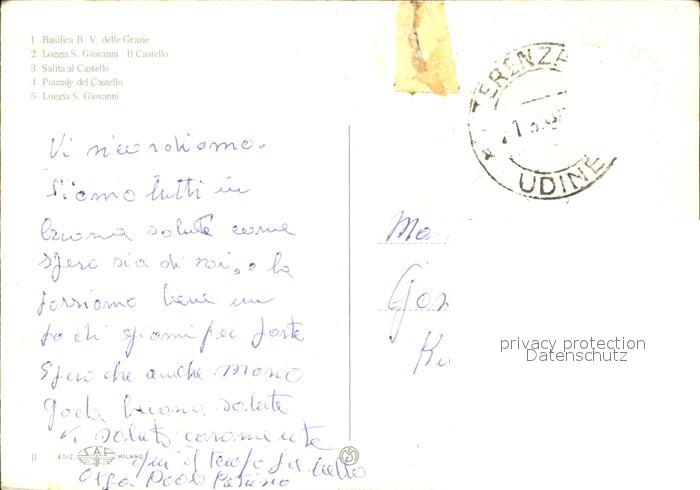 1 Basilica B. V. delle Grazie
2 Loggia S. Giovanni - Il Castello
3 Salita al Castello
4 Piazzale del Castello
5 Loggia S. Giovanni
UDINE
Vi ricordiamo.
Siamo tutti in
buona salute come
spero sia di voi, e la
passiamo bene un
po di giorni per
Spero che anche Mario
goda buona salute
Vi saluto caramente
qui il tempo fa bello
Olga Paolo
privacy protection
Datenschutz
II EDIZ. S.A.F. MILANO